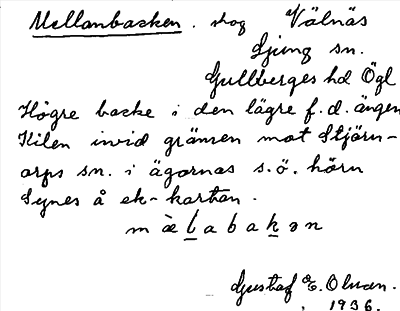 Mellanbacken. skog Välnäs
Ljung sn.
Gullbergs hd Ögl
Högre backe i den lägre f.d. ängen
Kilen invid gränsen mot Stjärn-
orps sn. i ägornas s.ö. hörn
Synes å ek-kartan.
m æ̀ l a b a k ə n
Gustaf E. Olsson.
1936.